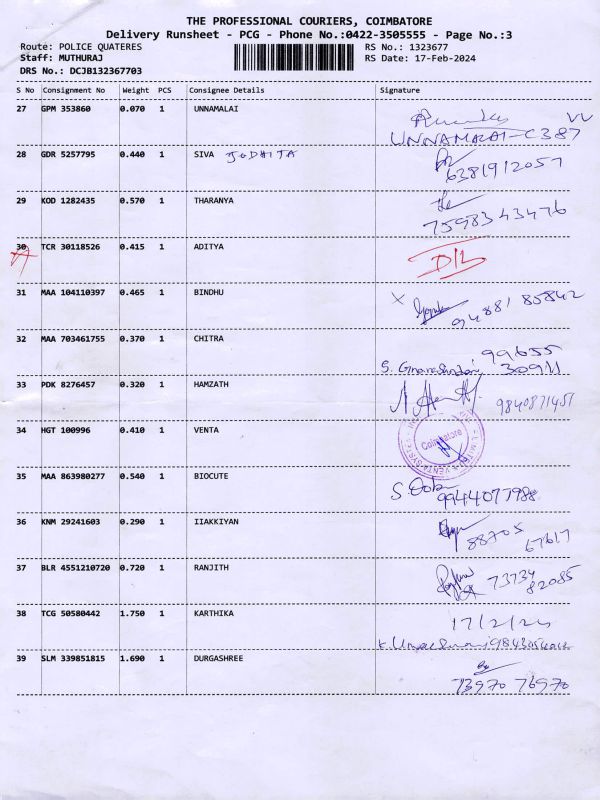 THE PROFESSIONAL COURIERS, COIMBATORE
Delivery Runsheet - PCG - Phone No.:0422-3505555 - Page No.:3
Route: POLICE QUATERES RS No.: 1323677
Staff: MUTHURAJ RS Date: 17-Feb-2024
DRS No.: DCJB132367703
S No Consignment No Weight PCS Consignee Details Signature
27 GPM 353860 0.070 1 UNNAMALAI
UNNAMALAI-C387
28 GDR 5257795 0.440 1 SIVA JODHITA
6381912057
29 KOD 1282435 0.570 1 THARANYA
7598343476
30 TCR 30118526 0.415 1 ADITYA
D/L
31 MAA 104110397 0.465 1 BINDHU
94881 85842
32 MAA 703461755 0.370 1 CHITRA
99655
30911
33 PDK 8276457 0.320 1 HAMZATH
9840871451
34 HGT 100996 0.410 1 VENTA
Coimbatore
35 MAA 863980277 0.540 1 BIOCUTE
9944077988
36 KNM 29241603 0.290 1 IIAKKIYAN
88705
67617
37 BLR 4551210720 0.720 1 RANJITH
73734
82085
38 TCG 50580442 1.750 1 KARTHIKA
17/2/24
39 SLM 339851815 1.690 1 DURGASHREE
73970 76970